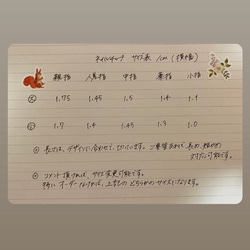 ネイルチップ サイズ表 /cm (横幅)
親指 人差指 中指 薬指 小指
大 1.75 1.45 1.5 1.4 1.1
小 1.7 1.4 1.45 1.3 1.0
長さは、デザインに合わせて、切っています。ご希望あれば、長め、短かめ
対応可能です。
コメント頂ければ、サイズ変更可能です。
特に オーダーなければ、上記の どちらかのサイズになります。